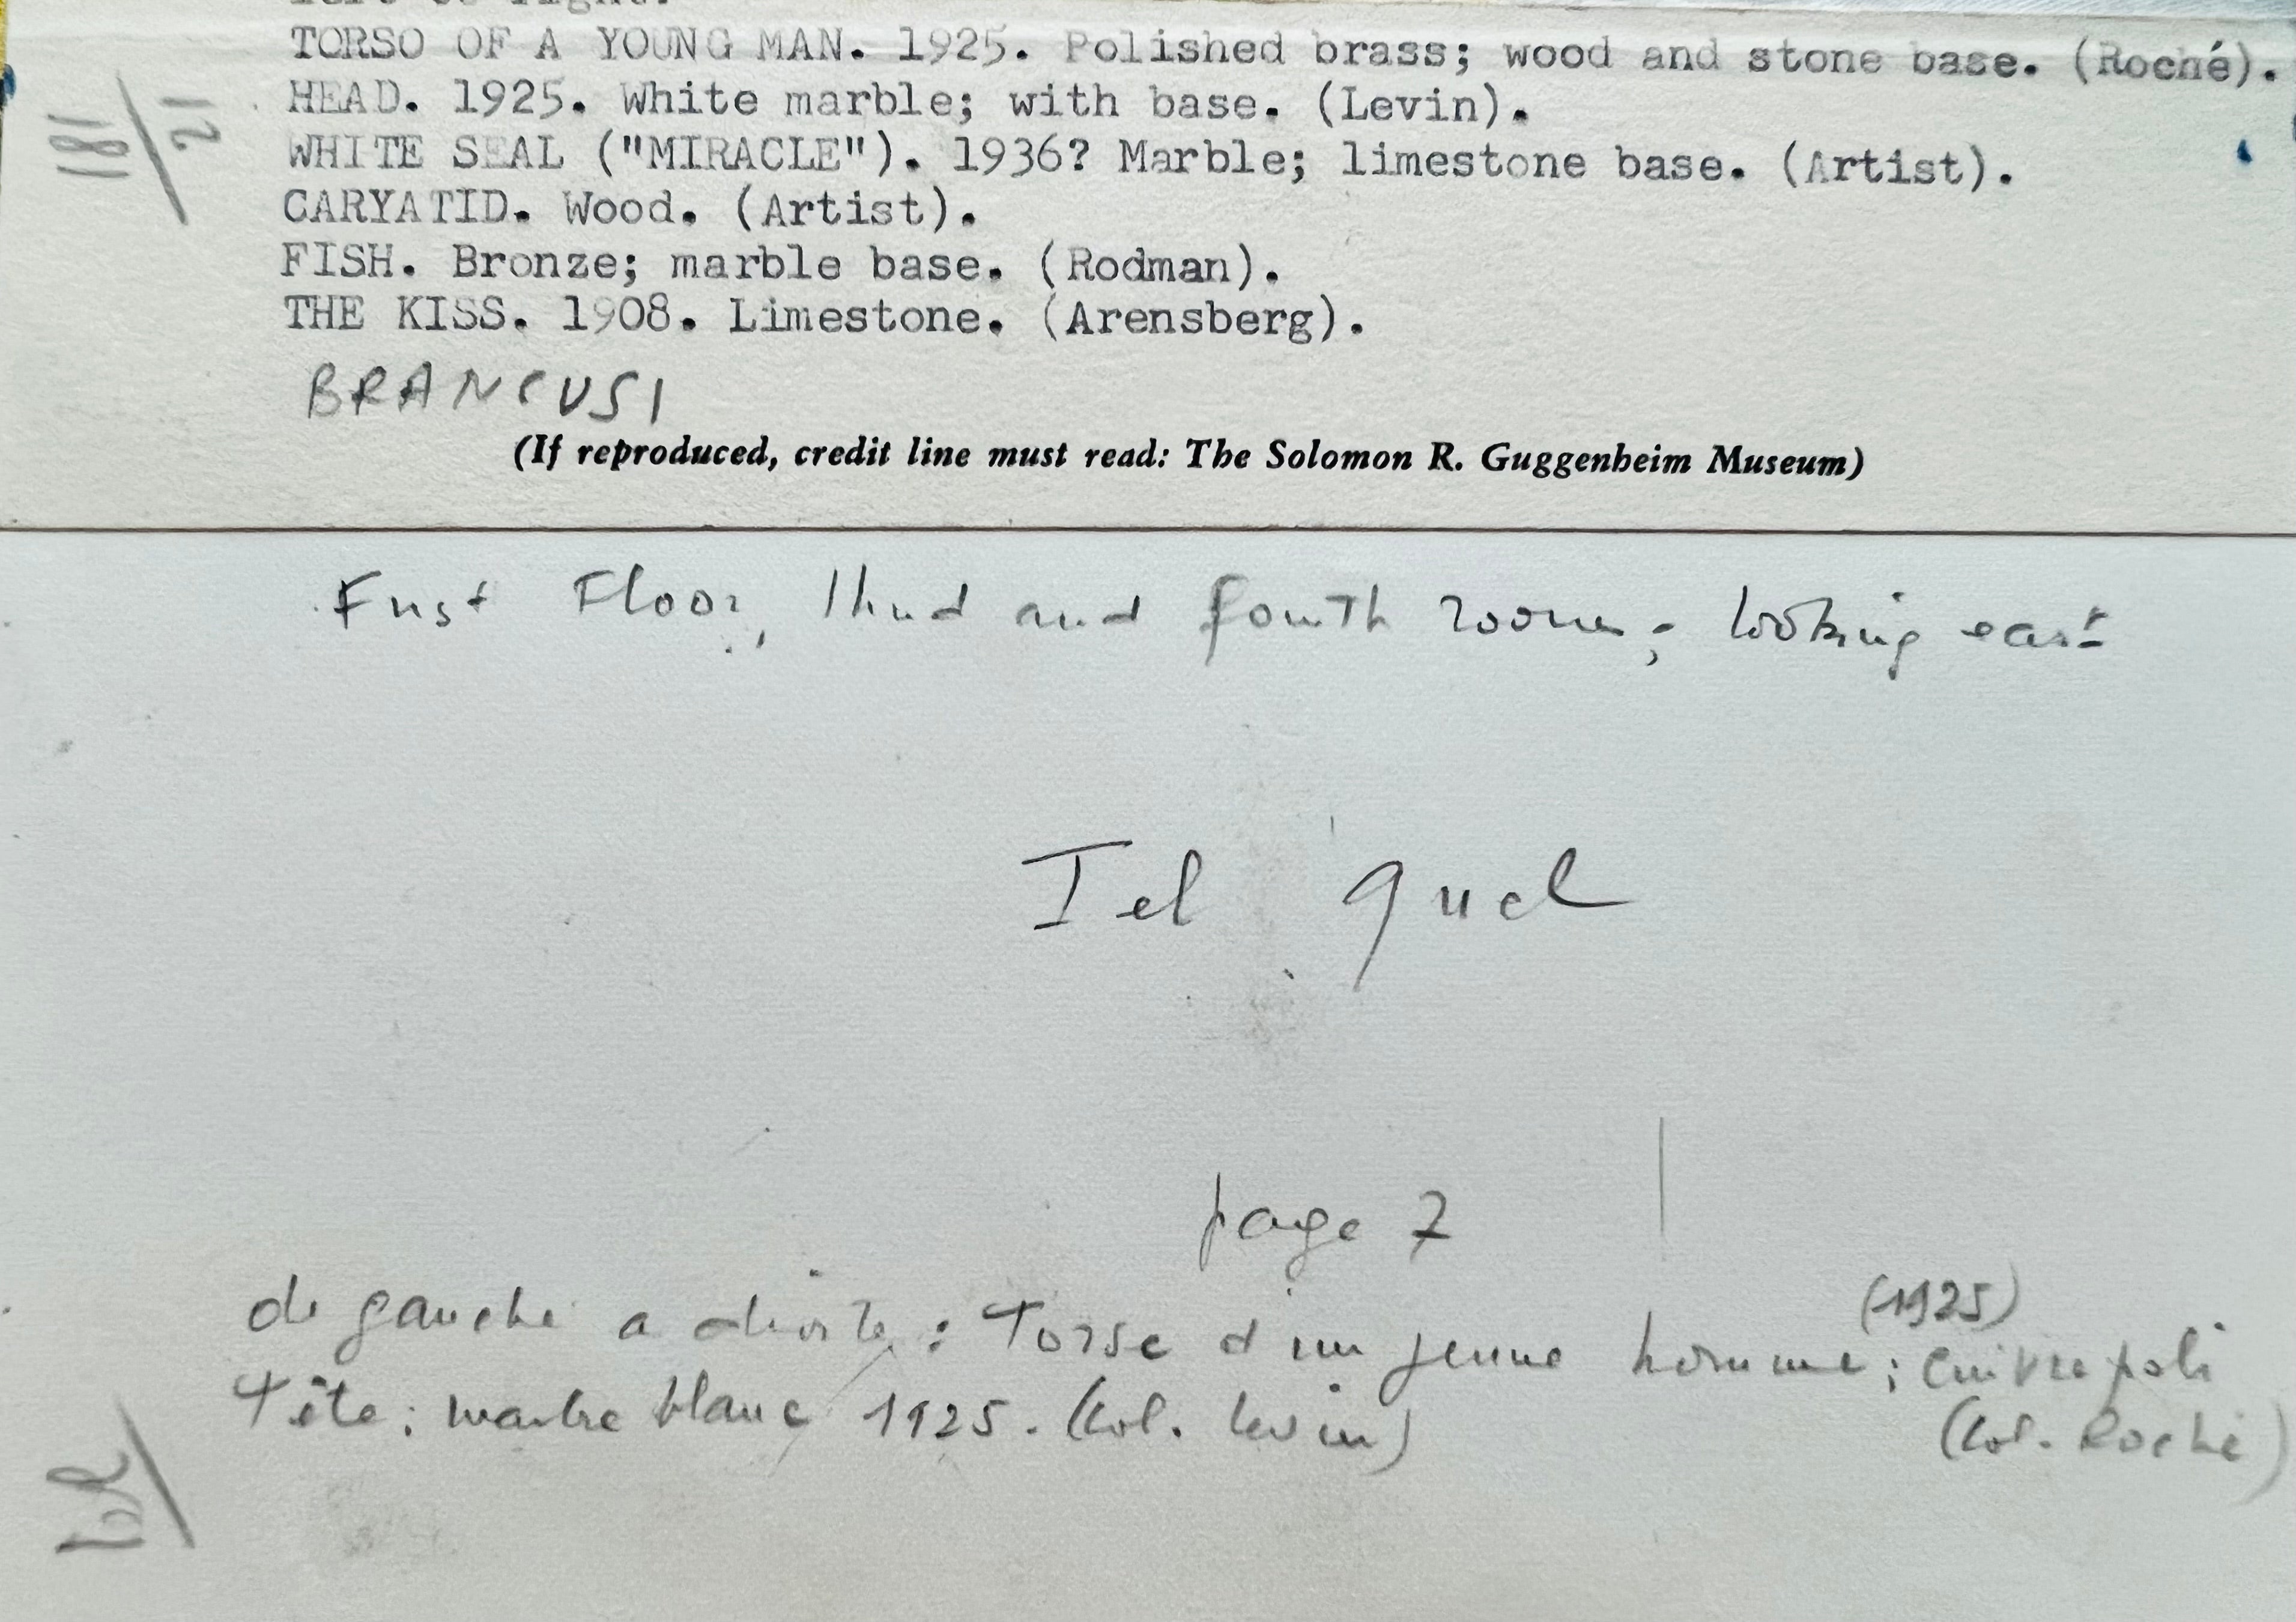 TORSO OF A YOUNG MAN. 1925. Polished brass; wood and stone base. (Roché).
HEAD. 1925. White marble; with base. (Levin).
WHITE SEAL ("MIRACLE"). 1936? Marble; limestone base. (Artist).
CARYATID. Wood. (Artist).
FISH. Bronze; marble base. (Rodman).
THE KISS. 1908. Limestone. (Arensberg).
BRANCUSI
(If reproduced, credit line must read: The Solomon R. Guggenheim Museum)
First Floor, third and fourth rooms; looking east
Tel quel
page 7
de gauche a droite: Torse d'un jeune homme; (1925) cuivre poli
Tête: marbre blanc 1925. (Col. Levin) (Col. Roché)
181/21